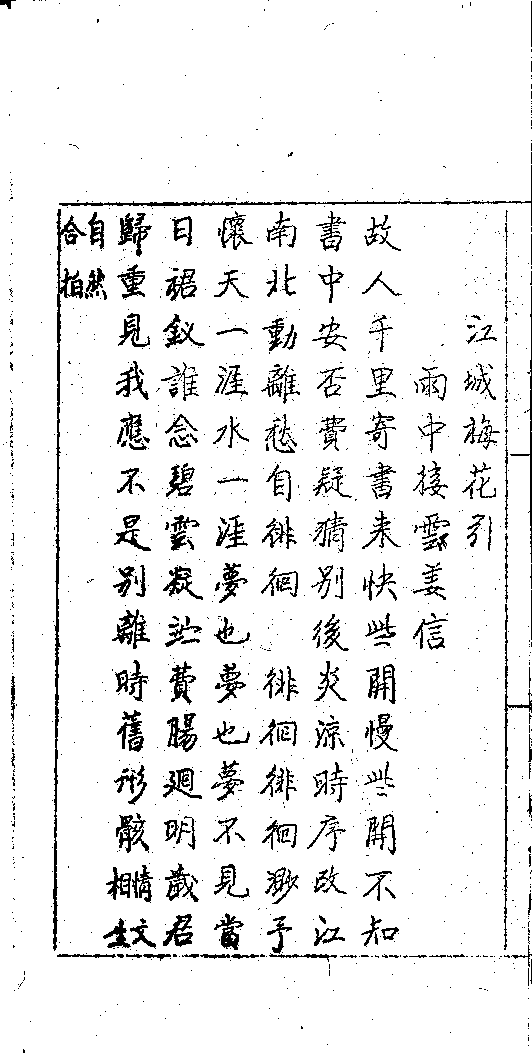 江城梅花引
雨中接雲姜信
故人千里寄書来快些開慢些開不知
書中安否費疑猜別後炎涼時序改江
南北動離愁自徘徊　徘徊徘徊渺予
懷天一涯水一涯夢也夢也夢不見當
日裙釵誰念碧雲凝竚費腸廻明歲君
歸重見我應不是別離時舊形骸情文相生
自然合拍